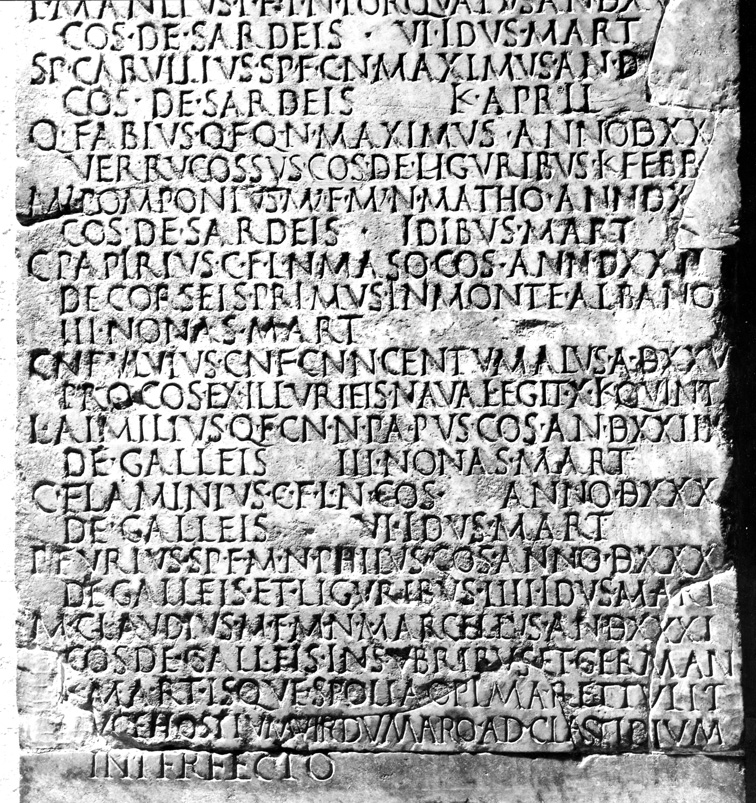 T·MANLIVS·T·F·T·N·TORQVATVS·AN·DX
COS·DE·SARDEIS · VI·IDVS·MART
SP·CARVILIVS·SP·F·C·N·MAXIMVS·AN·D
COS·DE·SARDEIS K·APRIL
Q·FABIVS·Q·F·Q·N·MAXIMVS·ANNO·DXX
VERRVCOSSVS·COS·DE·LIGVRIBVS·K·FEBR
POMPONIVS·M·F·M·N·MATHO·ANN·DX
COS·DE·SARDEIS · IDIBVS·MART
C·PAPIRIVS·C·F·L·N·MASO·COS·ANN·DXXII
DE·CORSEIS·PRIMVS·IN·MONTE·ALBANO
III·NONAS·MART
CN·FVLVIVS·CN·F·CN·N·CENTVMALVS·A·DXXV
PRO·COS·EX·ILLVRIEIS·NAVAL·EGIT·X·K·QVINT
L·AIMILIVS·Q·F·CN·N·PAPVS·COS·AN·DXXIIX
DE·GALLEIS III·NONAS·MART
C·FLAMINIVS·C·F·L·N·COS· ANNO·DXXX
DE·GALLEIS VI·IDVS·MART
P·FVRIVS·SP·F·M·N·PHILVS·COS·ANNO·DXXX
DE·GALLEIS·ET·LIGVRIBVS·IIII·IDVS·MART
M·CLAVDIVS·M·F·M·N·MARCELLVS·AN·DXXXI
COS·DE·GALLEIS·INSVBRIBVS·ET·GERMAN
K·MART·ISQVE·SPOLIA·OPIMA·RETTVLIT
DVCE·HOSTIVM·VIRDVMARO·AD·CLASTIDIVM
INTERFECTO